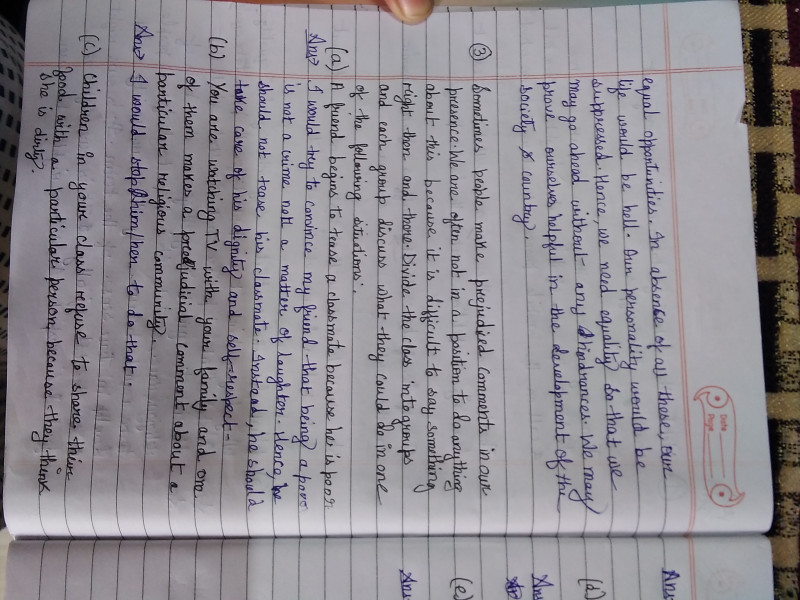 Date
Page
equal opportunities. In absence of all these, our
life would be hell. Our personality would be
suppressed. Hence, we need equality so that we
may go ahead without any hindrances. We may
prove ourselves helpful in the development of the
society & country.
③ Sometimes people make prejudied comments in our
presence. We are often not in a position to do anything
about this because it is difficult to say something
right then and there. Divide the class into groups
and each group discuss what they could do in one
of the following situations:
(a) A friend begins to tease a classmate because he is poor.
Ans I would try to convince my friend that being a poor
is not a crime not a matter of laughter. Hence, he
should not tease his classmate. Instead, he should
take care of his dignity and self-respect-
(b) You are watching TV with your family and one
of them makes a predjudicial comment about a
particular religious community
Ans I would stop him/her to do that.
(c) Children in your class refuse to share their
food with a particular person because they think
she is dirty.
Ans
(d)
Ans
(e)
Ans